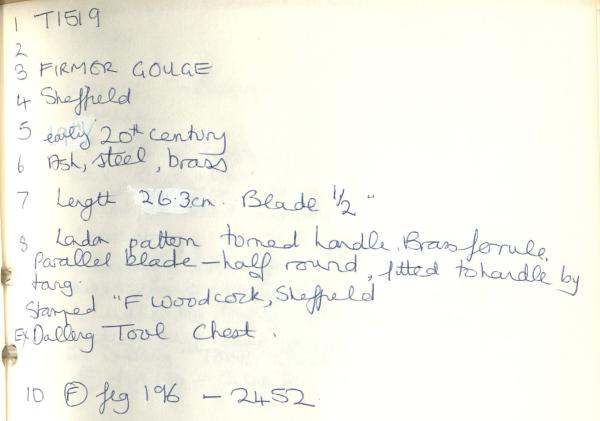 1 T1519
2
3 FIRMER GOUGE
4 Sheffield
5 early 20th century
6 Ash, steel, brass
7 Length 26.3cm. Blade 1/2"
8 London pattern turned handle. Brass ferrule.
Parallel blade - half round, fitted to handle by
tang.
Stamped "F Woodcock, Sheffield
Ex Tool Chest.
10 (F) fig 196 - 2452